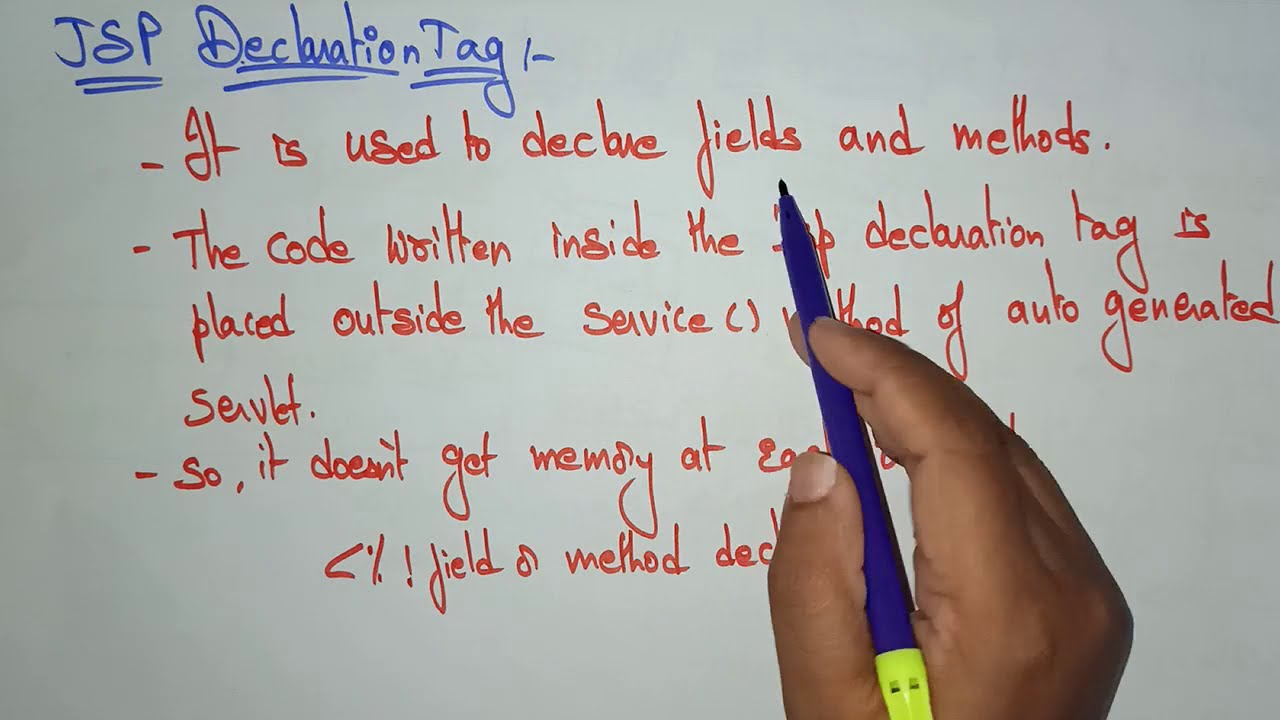 JSP Declaration Tag :-
- It is used to declare fields and methods.
- The code written inside the Jsp declaration tag is
placed outside the service() method of auto generated
servlet.
- So, it doesn't get memory at
<%! field or method